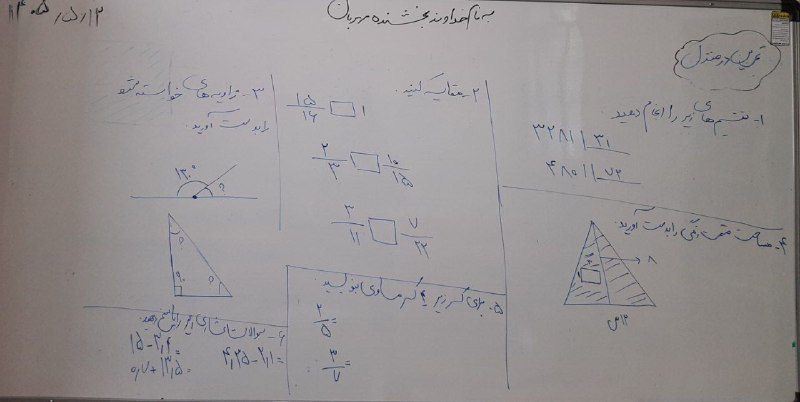 به نام خداوند بخشنده مهربان
تمرین در منزل
۱- تقسیم های زیر را انجام دهید.
۳۲۸۱ | ۳۱
۴۸۰۱ | ۷۲
۲- مقایسه کنید.
۱۵/۱۶ □ ۱
۲/۳ □ ۱۰/۱۵
۳/۱۱ □ ۷/۲۲
۳- زاویه های خواسته شده
را بدست آورید.
۱۳۰° ?
۴- مساحت قسمت رنگی را بدست آورید.
۸
۵- برای کسر زیر ۴ کسر مساوی بنویسید.
۲/۵ =
۳/۷ =
۶- سوالات اعشاری زیر را پاسخ دهید.
۱۵ - ۳٫۴ =
۴٫۲۵ - ۲٫۱ =
۰٫۷ + ۱۳٫۵ =